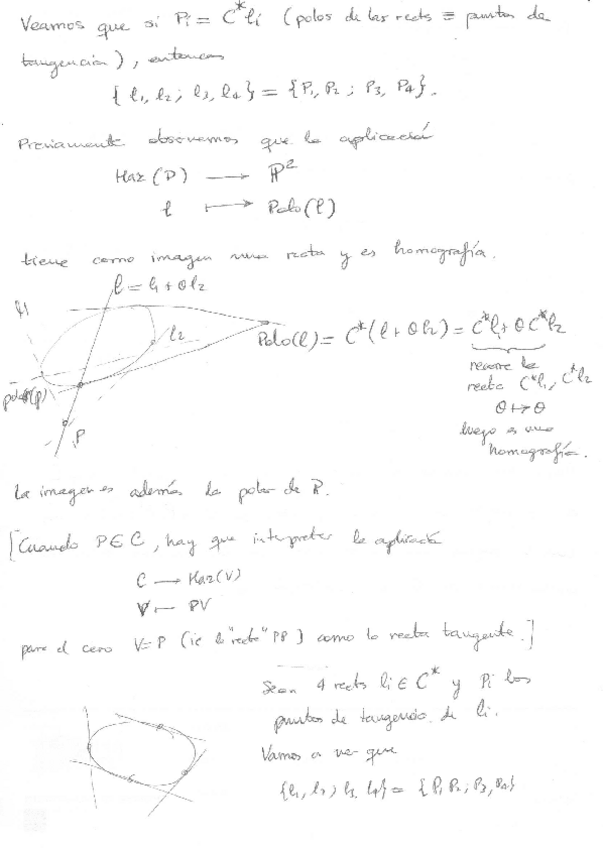 Veamos que si Pi = C*li (polos de las rects ≡ puntos de
tangencia), entonces
{l1, l2; l3, l4} = {P1, P2; P3, P4}.
Previamente observamos que la aplicación
Haz(P) → ℙ²
l ↦ Polo(l)
tiene como imagen una recta y es homografía.
l = l1 + θl2
l1
l2
polar(p)
P
Polo(l) = C*(l + θl2) = C*l1 + θC*l2
recorre la
recta C*l1, C*l2
θ ↦ θ
luego es una
homografía.
La imagen es además la polar de P.
[Cuando P ∈ C, hay que interpretar la aplicació
C → Haz(V)
V ↦ PV
para el caso V=P (ie la "recta" PP) como la recta tangente.]
Sean 4 rects li ∈ C* y Pi los
puntos de tangencia de li.
Vamos a ver que
{l1, l2; l3, l4} = {P1 P2; P3, P4}